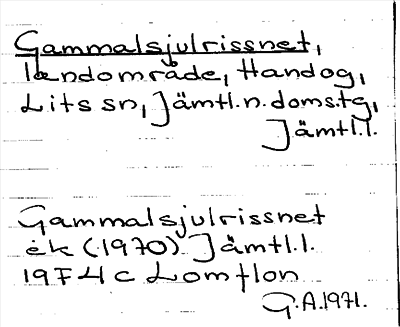 Gammalsjulrissnet,
landområde, Handog,
Lits sn, Jämtl.n.doms.tg,
Jämtl.l.
Gammalsjulrissnet
ek (1970) Jämtl.l.
19F4c Lomtlon
G.A.1971.